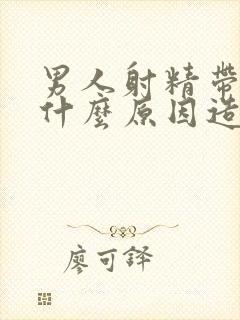 男人射精帶
什麼原因造
廖可鐸